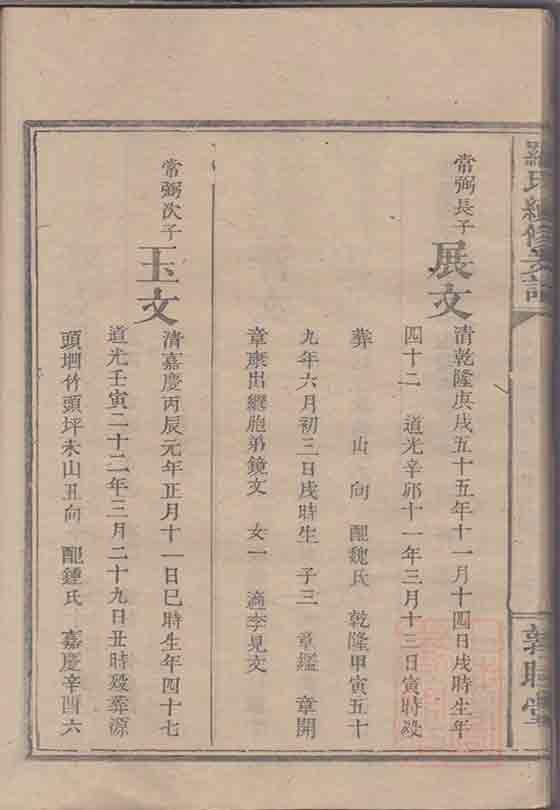 羅氏續修支譜
敦睦堂
常弼長子
展文
清乾隆庚戌五十五年十一月十四日戌時生年
四十二 道光辛卯十一年三月十三日寅時歿
葬 山 向 配魏氏 乾隆甲寅五十
九年六月初三日戌時生 子三 章鑑 章開
章康出繼胞弟鏡文 女一 適李見文
常弼次子
玉文
清嘉慶丙辰元年正月十一日巳時生年四十七
道光壬寅二十二年三月二十九日丑時歿葬源
頭堈竹頭坪未山丑向 配鍾氏 嘉慶辛酉六